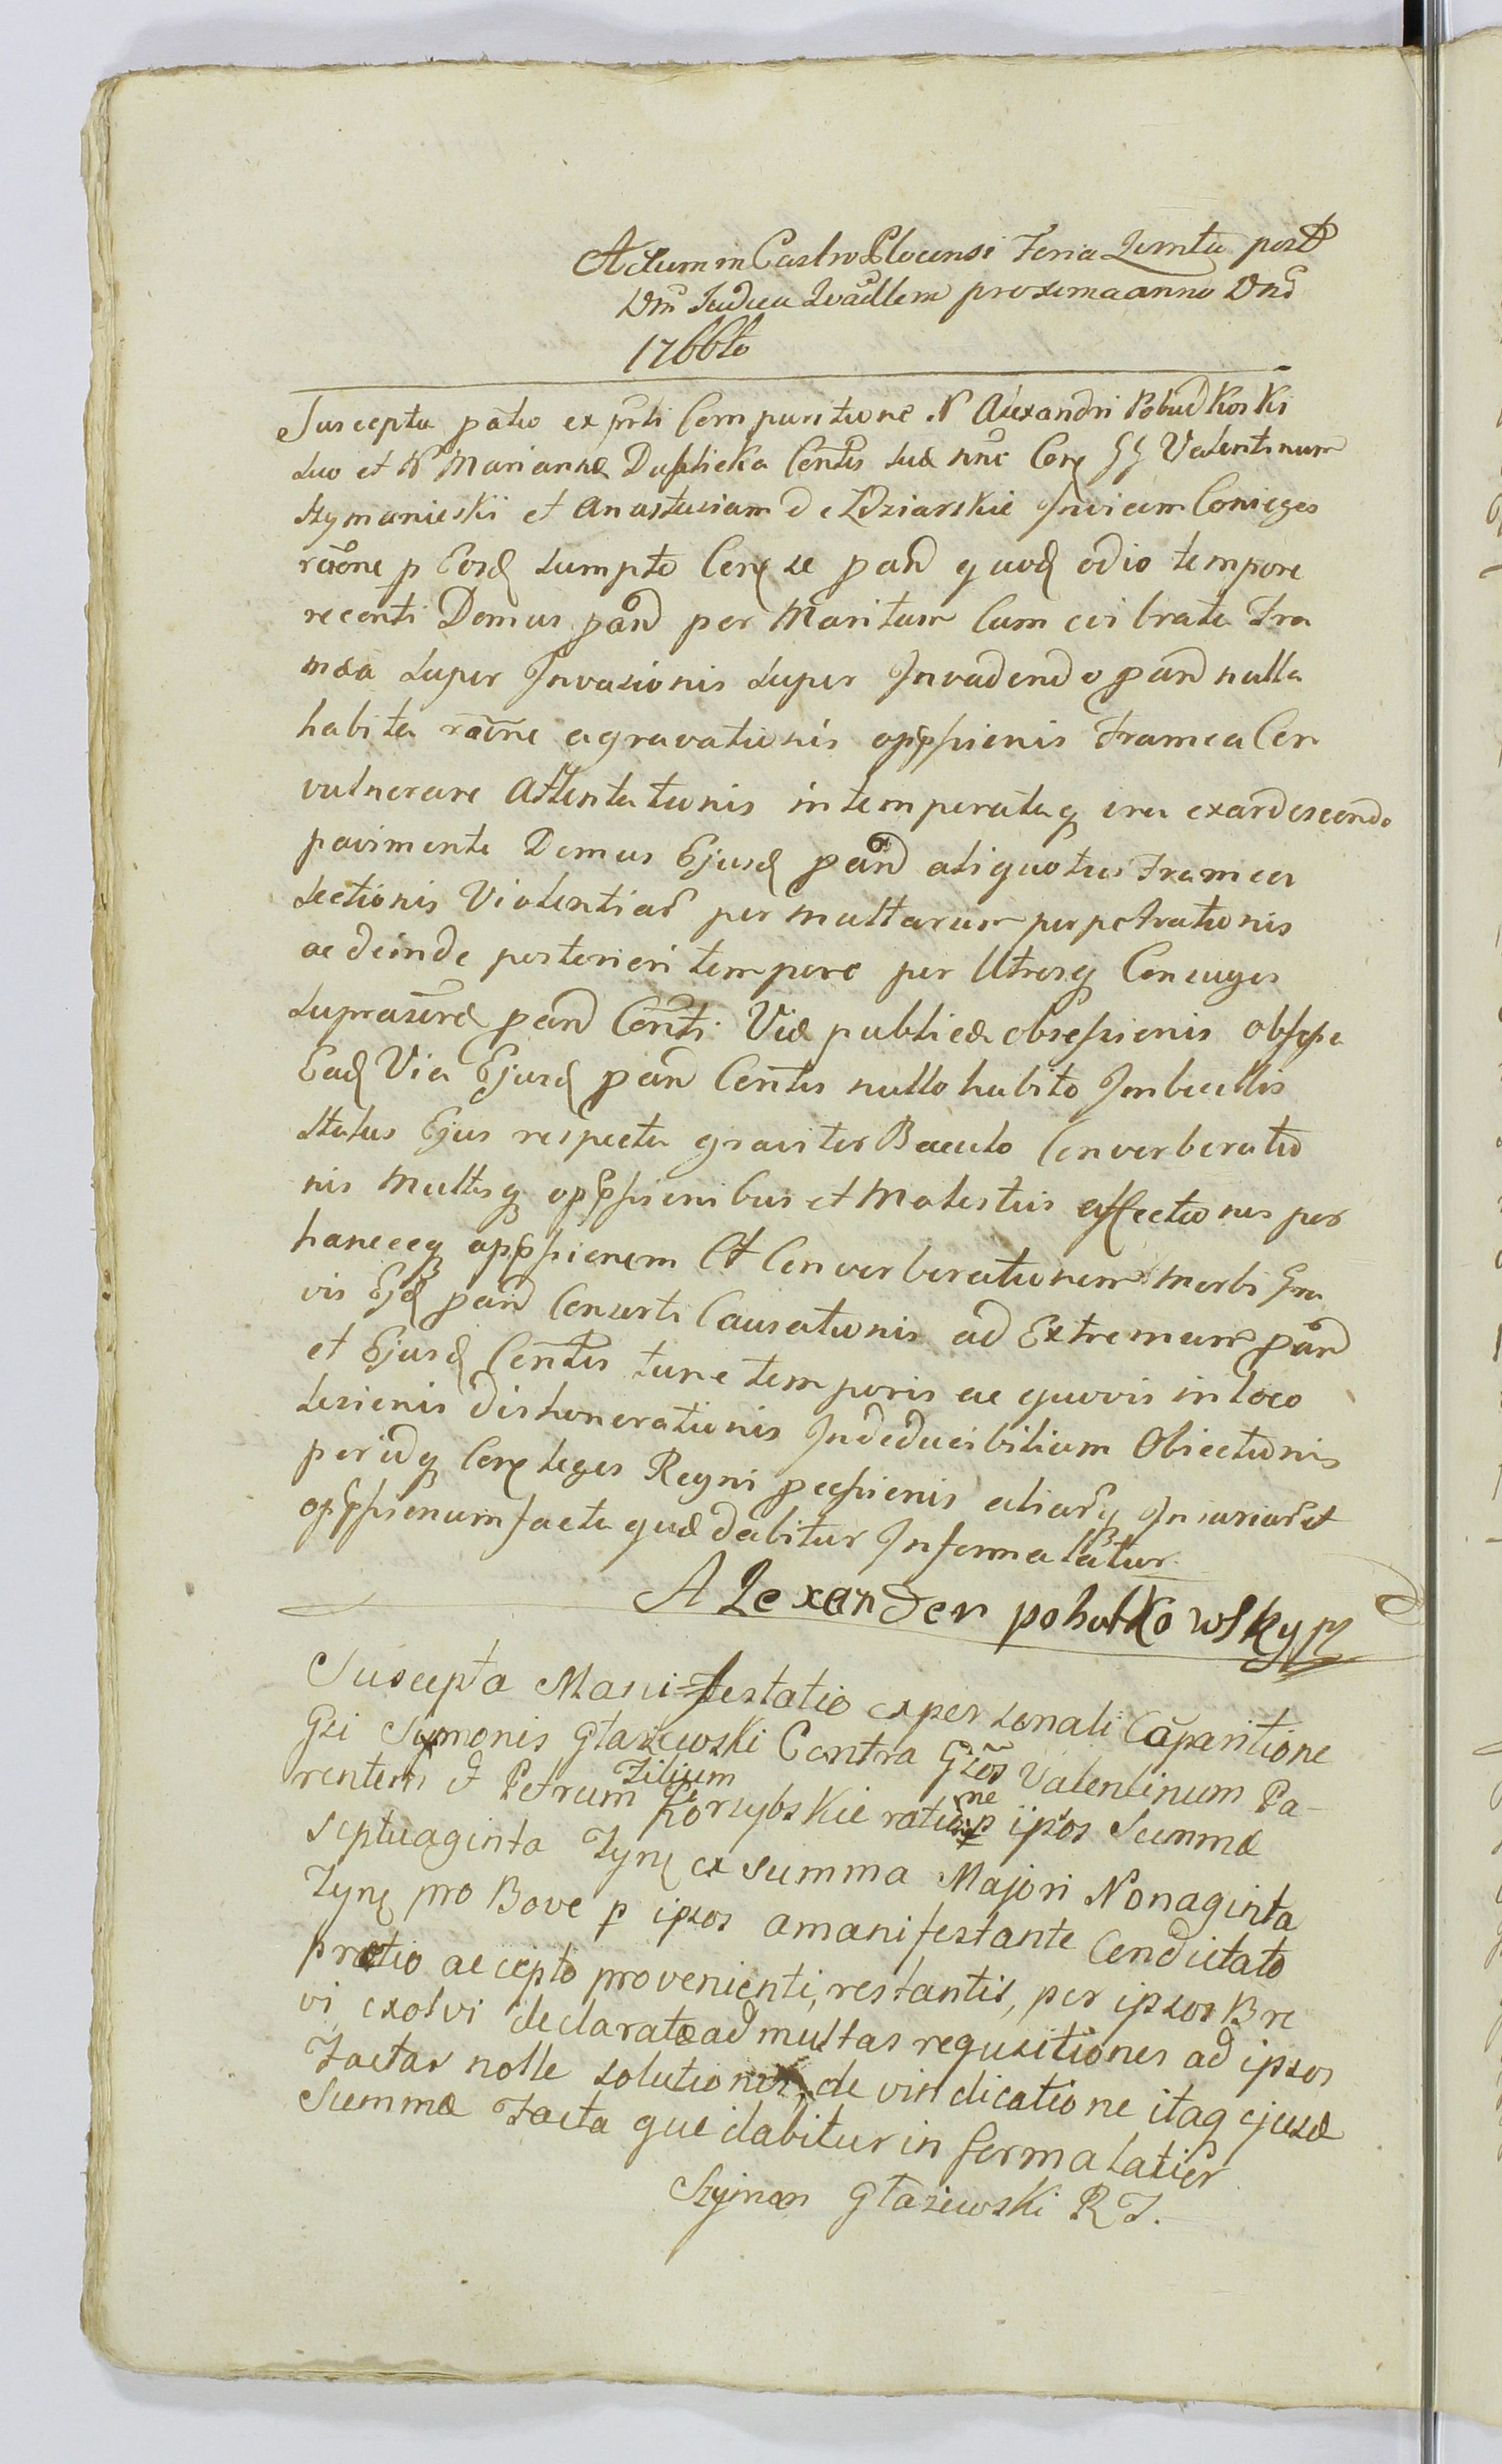 Actum in Castro Plocensi Feria Quinta post
Dnm Judica Quadlem proxima anno Dni
1766to
Suscepta patio ex prli Comparitione N Alexandri Pobudkoski
suo et N Mariannæ Duplicka Contis suæ nnē Conę GG Valentinum
Szymanieski et Anastasiam de Zdziarskie Invicem Coniuges
raōne p Eosd sumpto Conę se pand quod odio tempore
recenti Domus pand per Maritum Cum evibrata Fra
mea super Invasionis super Invadendo pand nulla
habita raōne agravationis oppssionis Framea Con
vulnerare Attentationis intemperataq ira exardescendo
pavimenta Domus Ejusd pand aliquoties Framea
Sectionis Violentiar per multarum perpetrationis
ac deinde posteriori tempore per Utrosq Coniuges
suprascrē pand Conti Viæ publicæ obsessionis obsessa
Ead Via Ejusd pand Contis nullo habito Imbecillis
status Ejus respectu graviter Baculo Converberatio
nis multisq oppssionibus et Molestiis affectionis per
hancceq oppssionem Et Converberationem morbi Gra
vis Ejd pand Consorti Causationis ad Extremum pand
et Ejusd Contis tunc temporis ac quovis in loco
lesionis dishonorationis Indeducibilium Obiectionis
per idq Conę leges Regni pccssionis aliarq Iniuriar et
oppssionum facta quæ dabitur In forma latior
Alexander pobutkowsky mp
Suscepta Manifestatio ex personali Coparitione
Gsi Symonis Głażewski Contra Gsos Valentinum Pa-
rentem et Petrum Filium Korzybskie ratione p ipsos Summæ
septuaginta Tynę ex summa Majori Nonaginta
Tynę pro Bove p ipsos a manifestante Condictato
prætio accepto provenienti, restantis, per ipsos Bre
vi exolvi declaratæ ad multas requisitiones ad ipsos
Factas nolle solutionis, de vindicatione itaq ejusd
Summæ Facta que dabitur in forma latior
Szymon Głażewski R J.